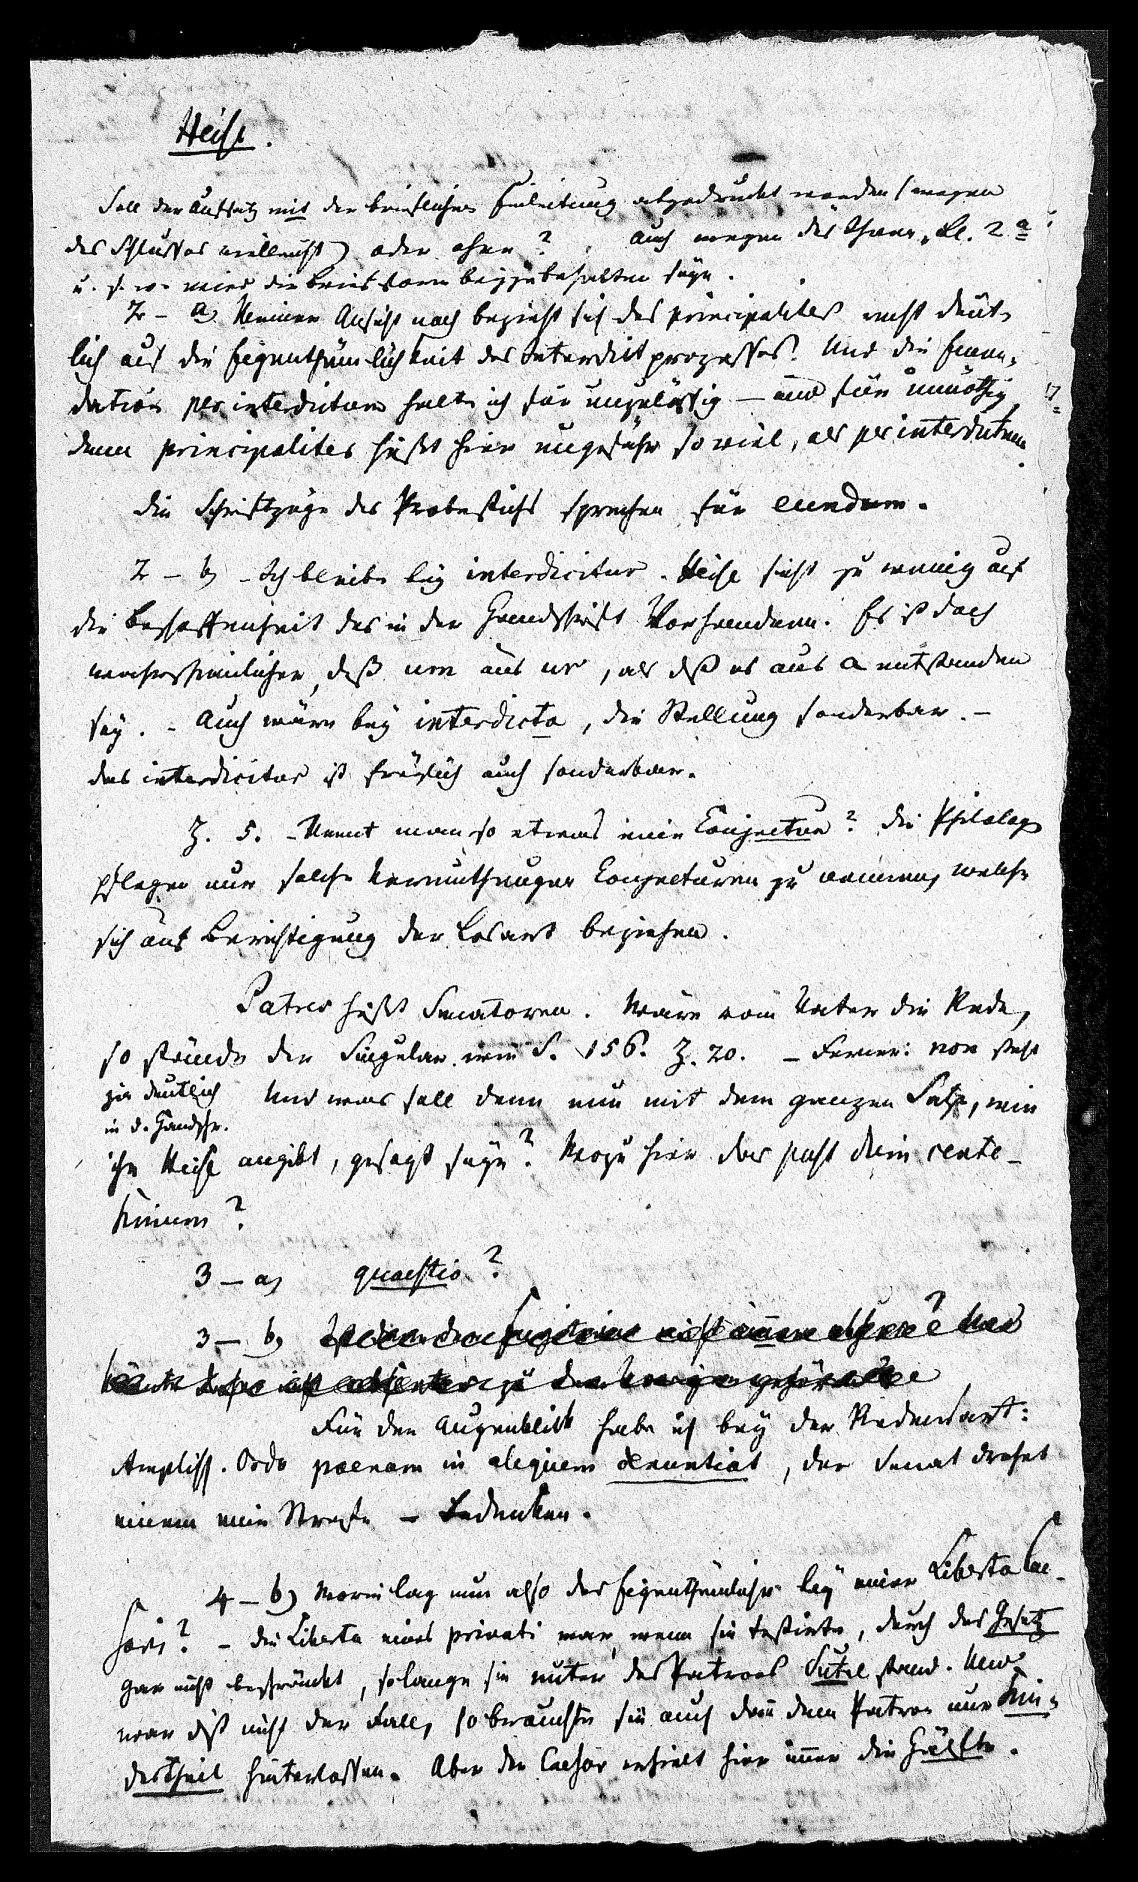 Heise.
Soll der Aufsatz mit der brieflichen Einleitung abgedruckt werden (wegen
des Schlusses vielleicht) oder ohne? Auch wegen des Bl. 2 a
u. s. w. wird die Briefform beyzubehalten seyn.
2 – a) Meiner Ansicht nach bezieht sich das principaliter recht deut-
lich auf die Eigenthümlichkeit des Interdictprozesses. Und die Emen-
dation per interdictum halte ich für unzulässig – und für unnöthig
denn principaliter heißt hier ungefähr so viel, als per interdictum.
Die Schriftzüge des Probestichs sprechen für eundem.
2 – b) – Ich bleibe bey interdicitur. Heise sieht zu wenig auf
die Beschaffenheit des in der Handschrift Vorhandenen. Es ist doch
wahrscheinlicher, daß um aus ur, als daß es aus a entstanden
sey. – Auch wäre bey interdicta, die Stellung sonderbar. –
das interdicitur ist freylich auch sonderbar.
Z. 5. – Nennt man so etwas eine Conjectur? Die Philologen
pflegen nur solche Vermuthungen Conjecturen zu nennen, welche
sich auf Berichtigung der Lesart beziehen.
Patres heißt Senatoren. Wäre vom Vater die Rede,
so stünde der Singular wie S. 156. Z. 20. – Ferner: non steht
ja deutlich
in d. Handschr.
Und was soll denn nun mit dem ganzen Satz, wie
ihn Heise angibt, gesagt seyn? Wozu hier das post diem cente-
simum?
3 – a) quaestio?
3 – b)
Für den Augenblick habe ich bey der Redensart:
Ampliss. Ordo poenam in aliquem denuntiat, der Senat drohet
einem eine Strafe – Bedenken.
4 – b) Worin lag nun also das Eigenthümliche bey einer Liberta Cae-
saris? – Die Liberta eines privati war, wenn sie testirte, durch das Gesetz
gar nicht beschränkt, solange sie unter des Patrons Tutel stand. Und
war dieß nicht der Fall, so brauchte sie auch dem Patron nur Kin-
destheil hinterlassen. Aber der Caesar erhielt hier immer die Hälfte.